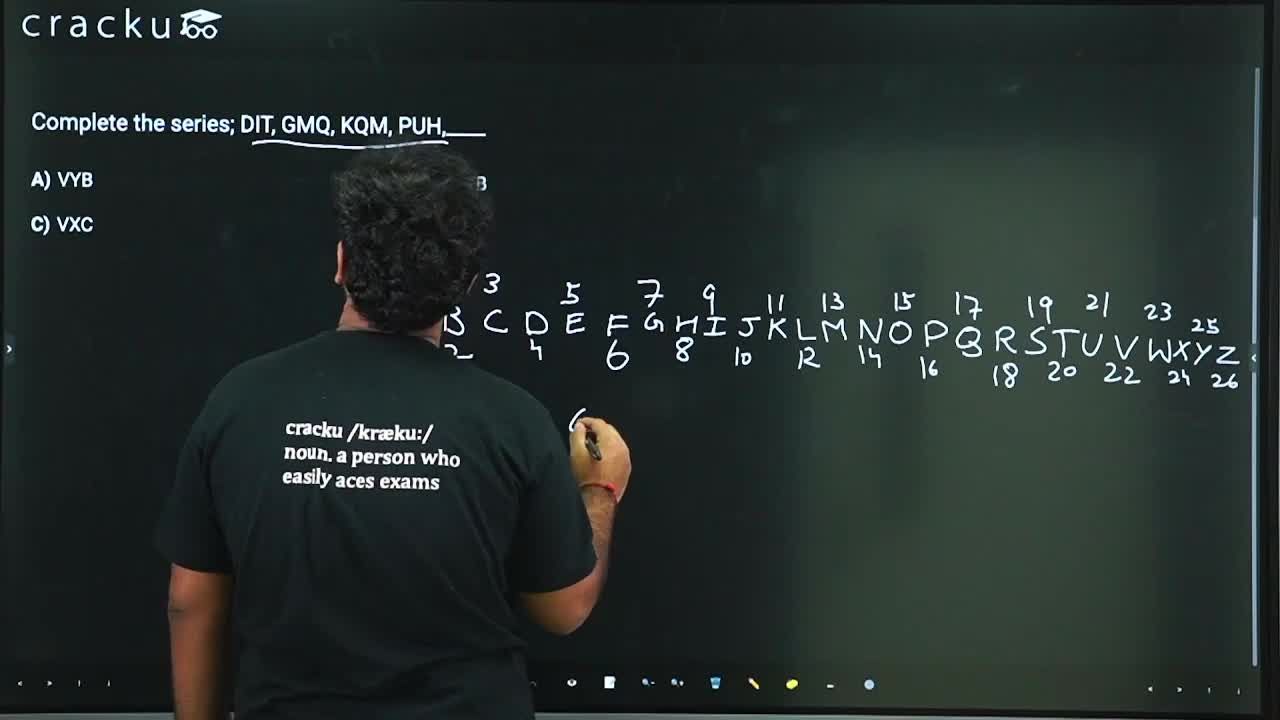 cracku
Complete the series; DIT, GMQ, KQM, PUH,
A) VYB
B
C) VXC
3 5 7 9 11 13 15 17 19 21 23 25
B C D E F G H I J K L M N O P Q R S T U V W X Y Z
2 4 6 8 10 12 14 16 18 20 22 24 26
cracku /kræku:/
noun. a person who
easily aces exams